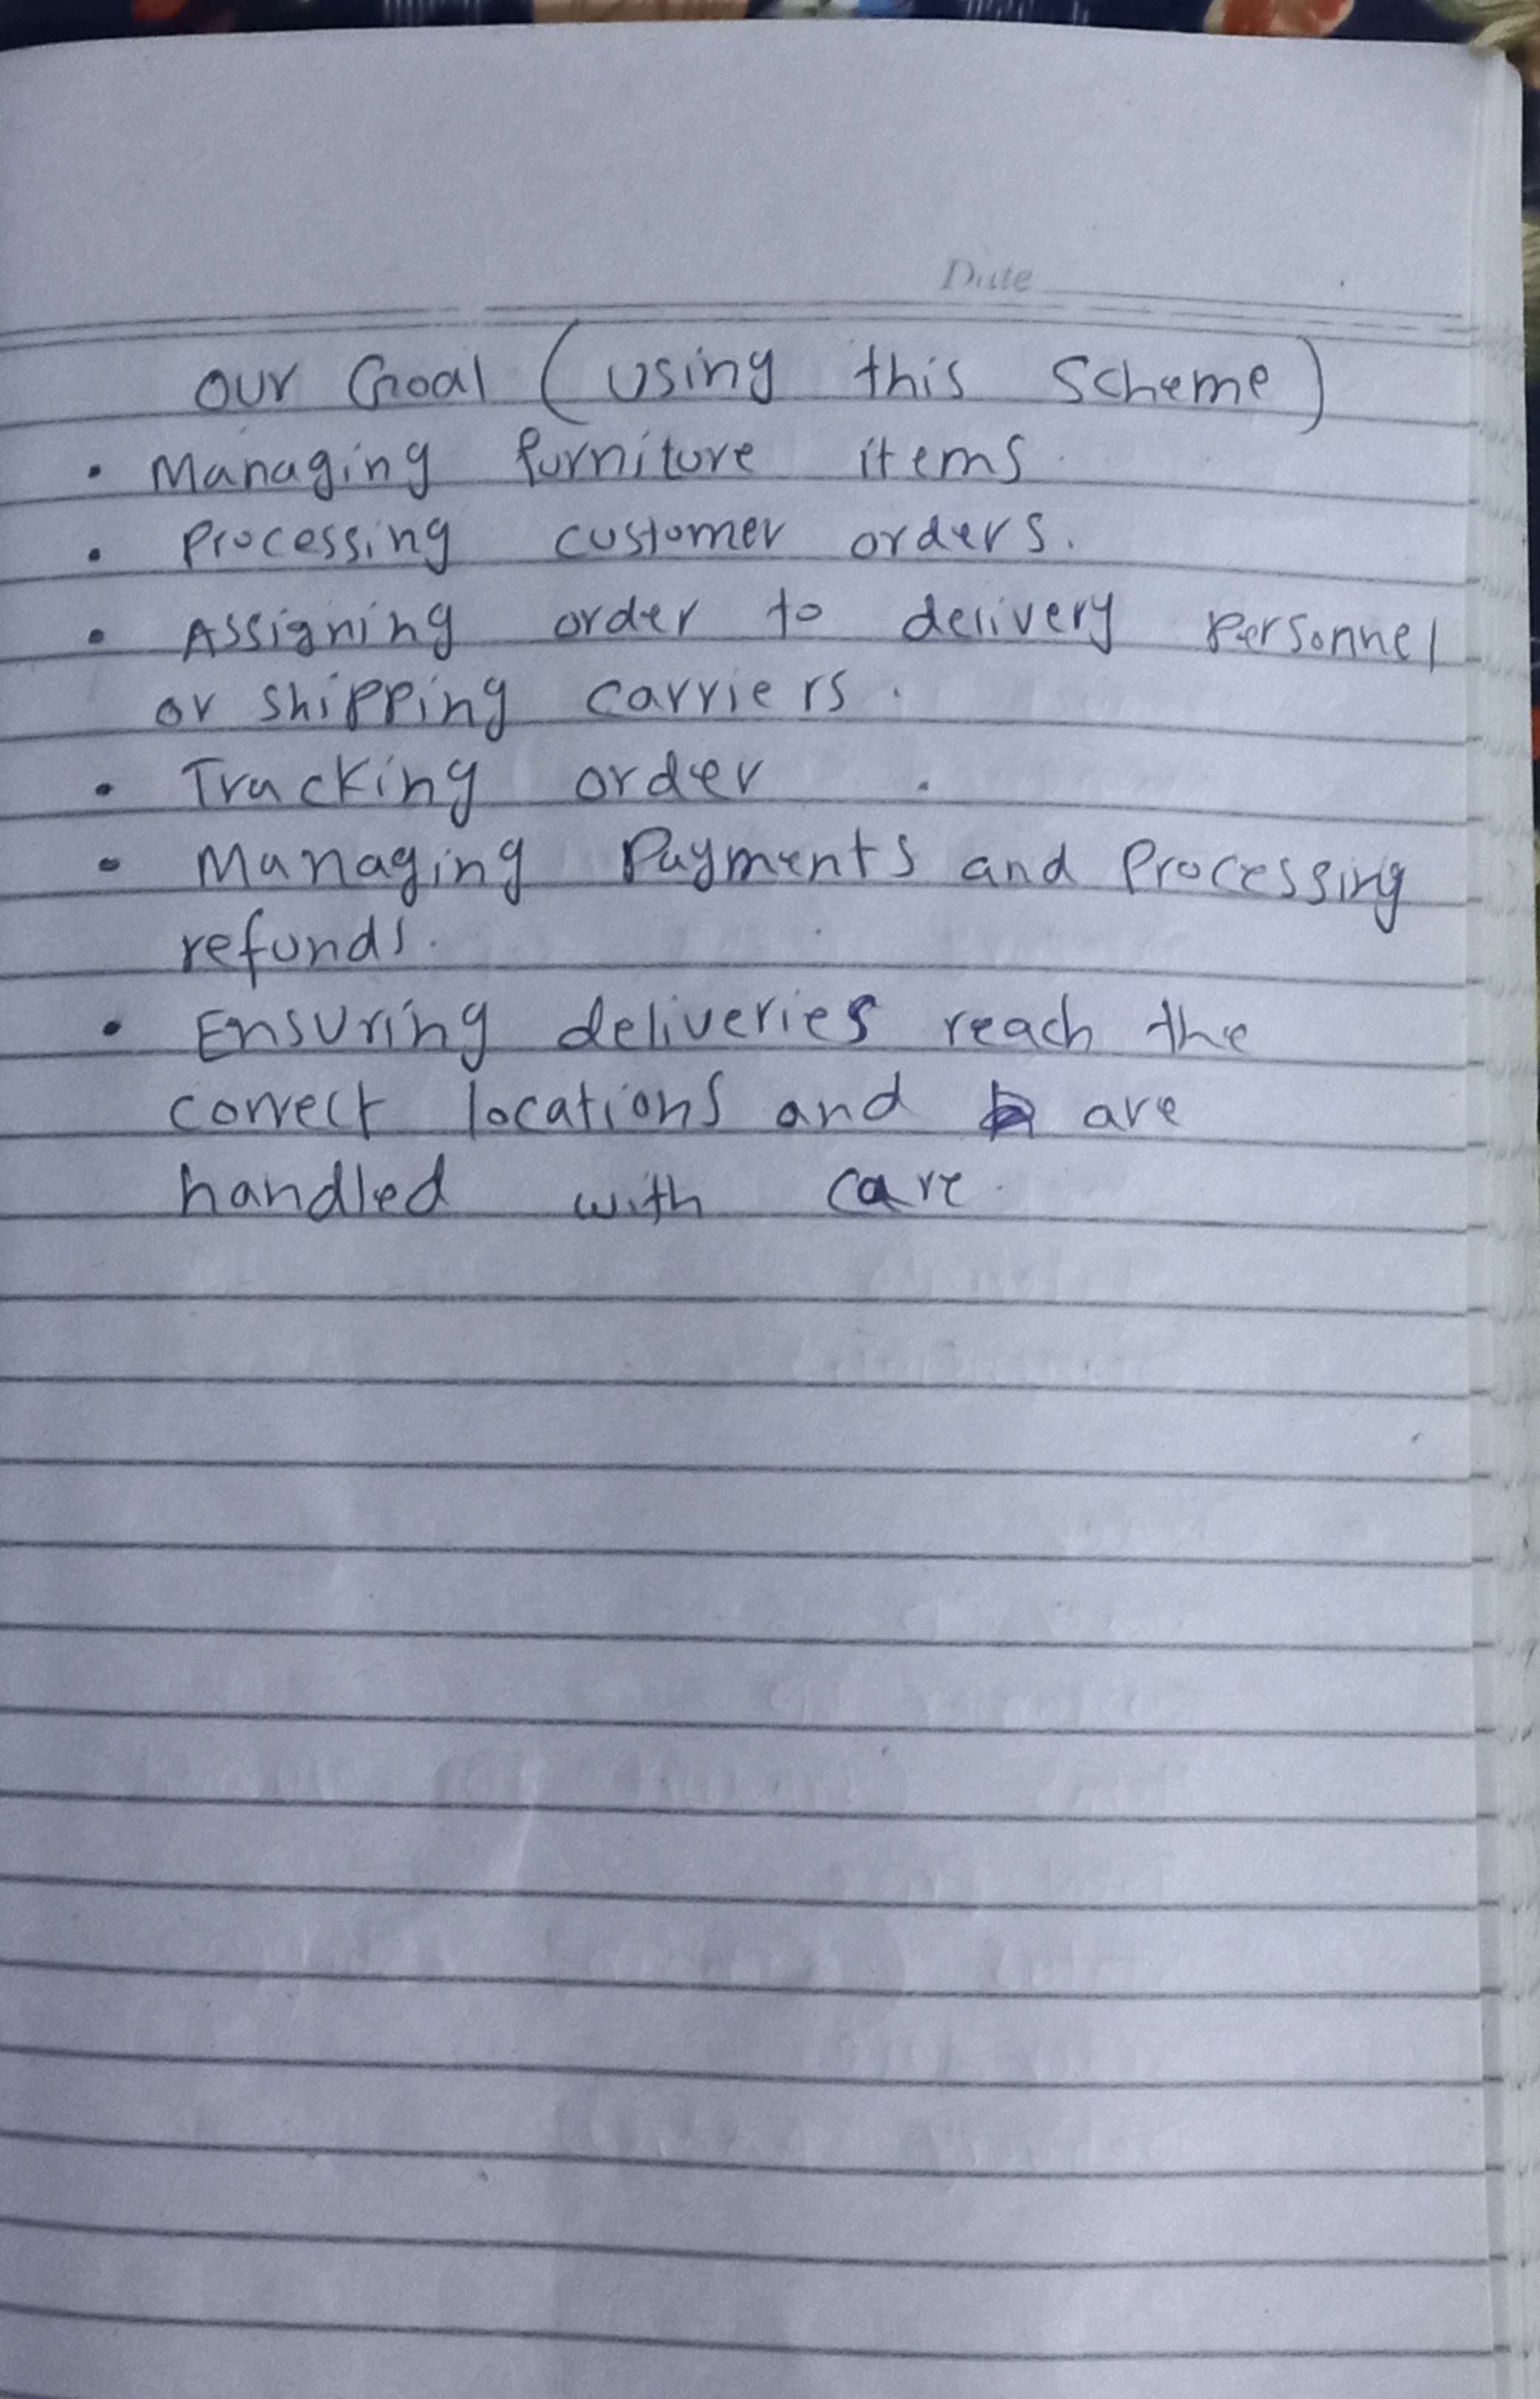 Date
OUR Goal (using this Scheme)
• Managing furniture items.
• Processing customer orders.
• Assigning order to delivery Personnel
or shipping carriers.
• Tracking order .
• Managing Payments and Processing
refunds.
• Ensuring deliveries reach the
correct locations and are
handled with care.